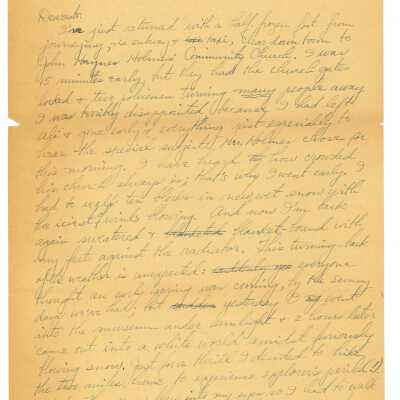 Dearest:
I'm just returned with a half frozen foot from
journeying, via subway & taxi, clear down town to
John Haynes Holmes' Community Church. I was
15 minutes early, but they had the church gates
locked & two policemen turning many people away.
I was terribly disappointed because I had left
all & gone early & everything just especially to
hear the special subject Mr. Holmes chose for
this morning. I have heard how crowded
his church always is; that's why I went early. I
had to walk ten blocks in new, wet snow with
the worst winds blowing. And now I'm back
again sweatered & blanket-bound with
my feet against the radiator. This turning back
of the weather is unexpected: everyone
thought an early spring was coming, by the sunny
days we've had; but yesterday I went
into the museum under sunlight & 2 hours later
came out into a white world amidst furiously
blowing snow. Just for a thrill I decided to hike
the two miles home to experience explorer's perils.
into my eyes, so I had to walk